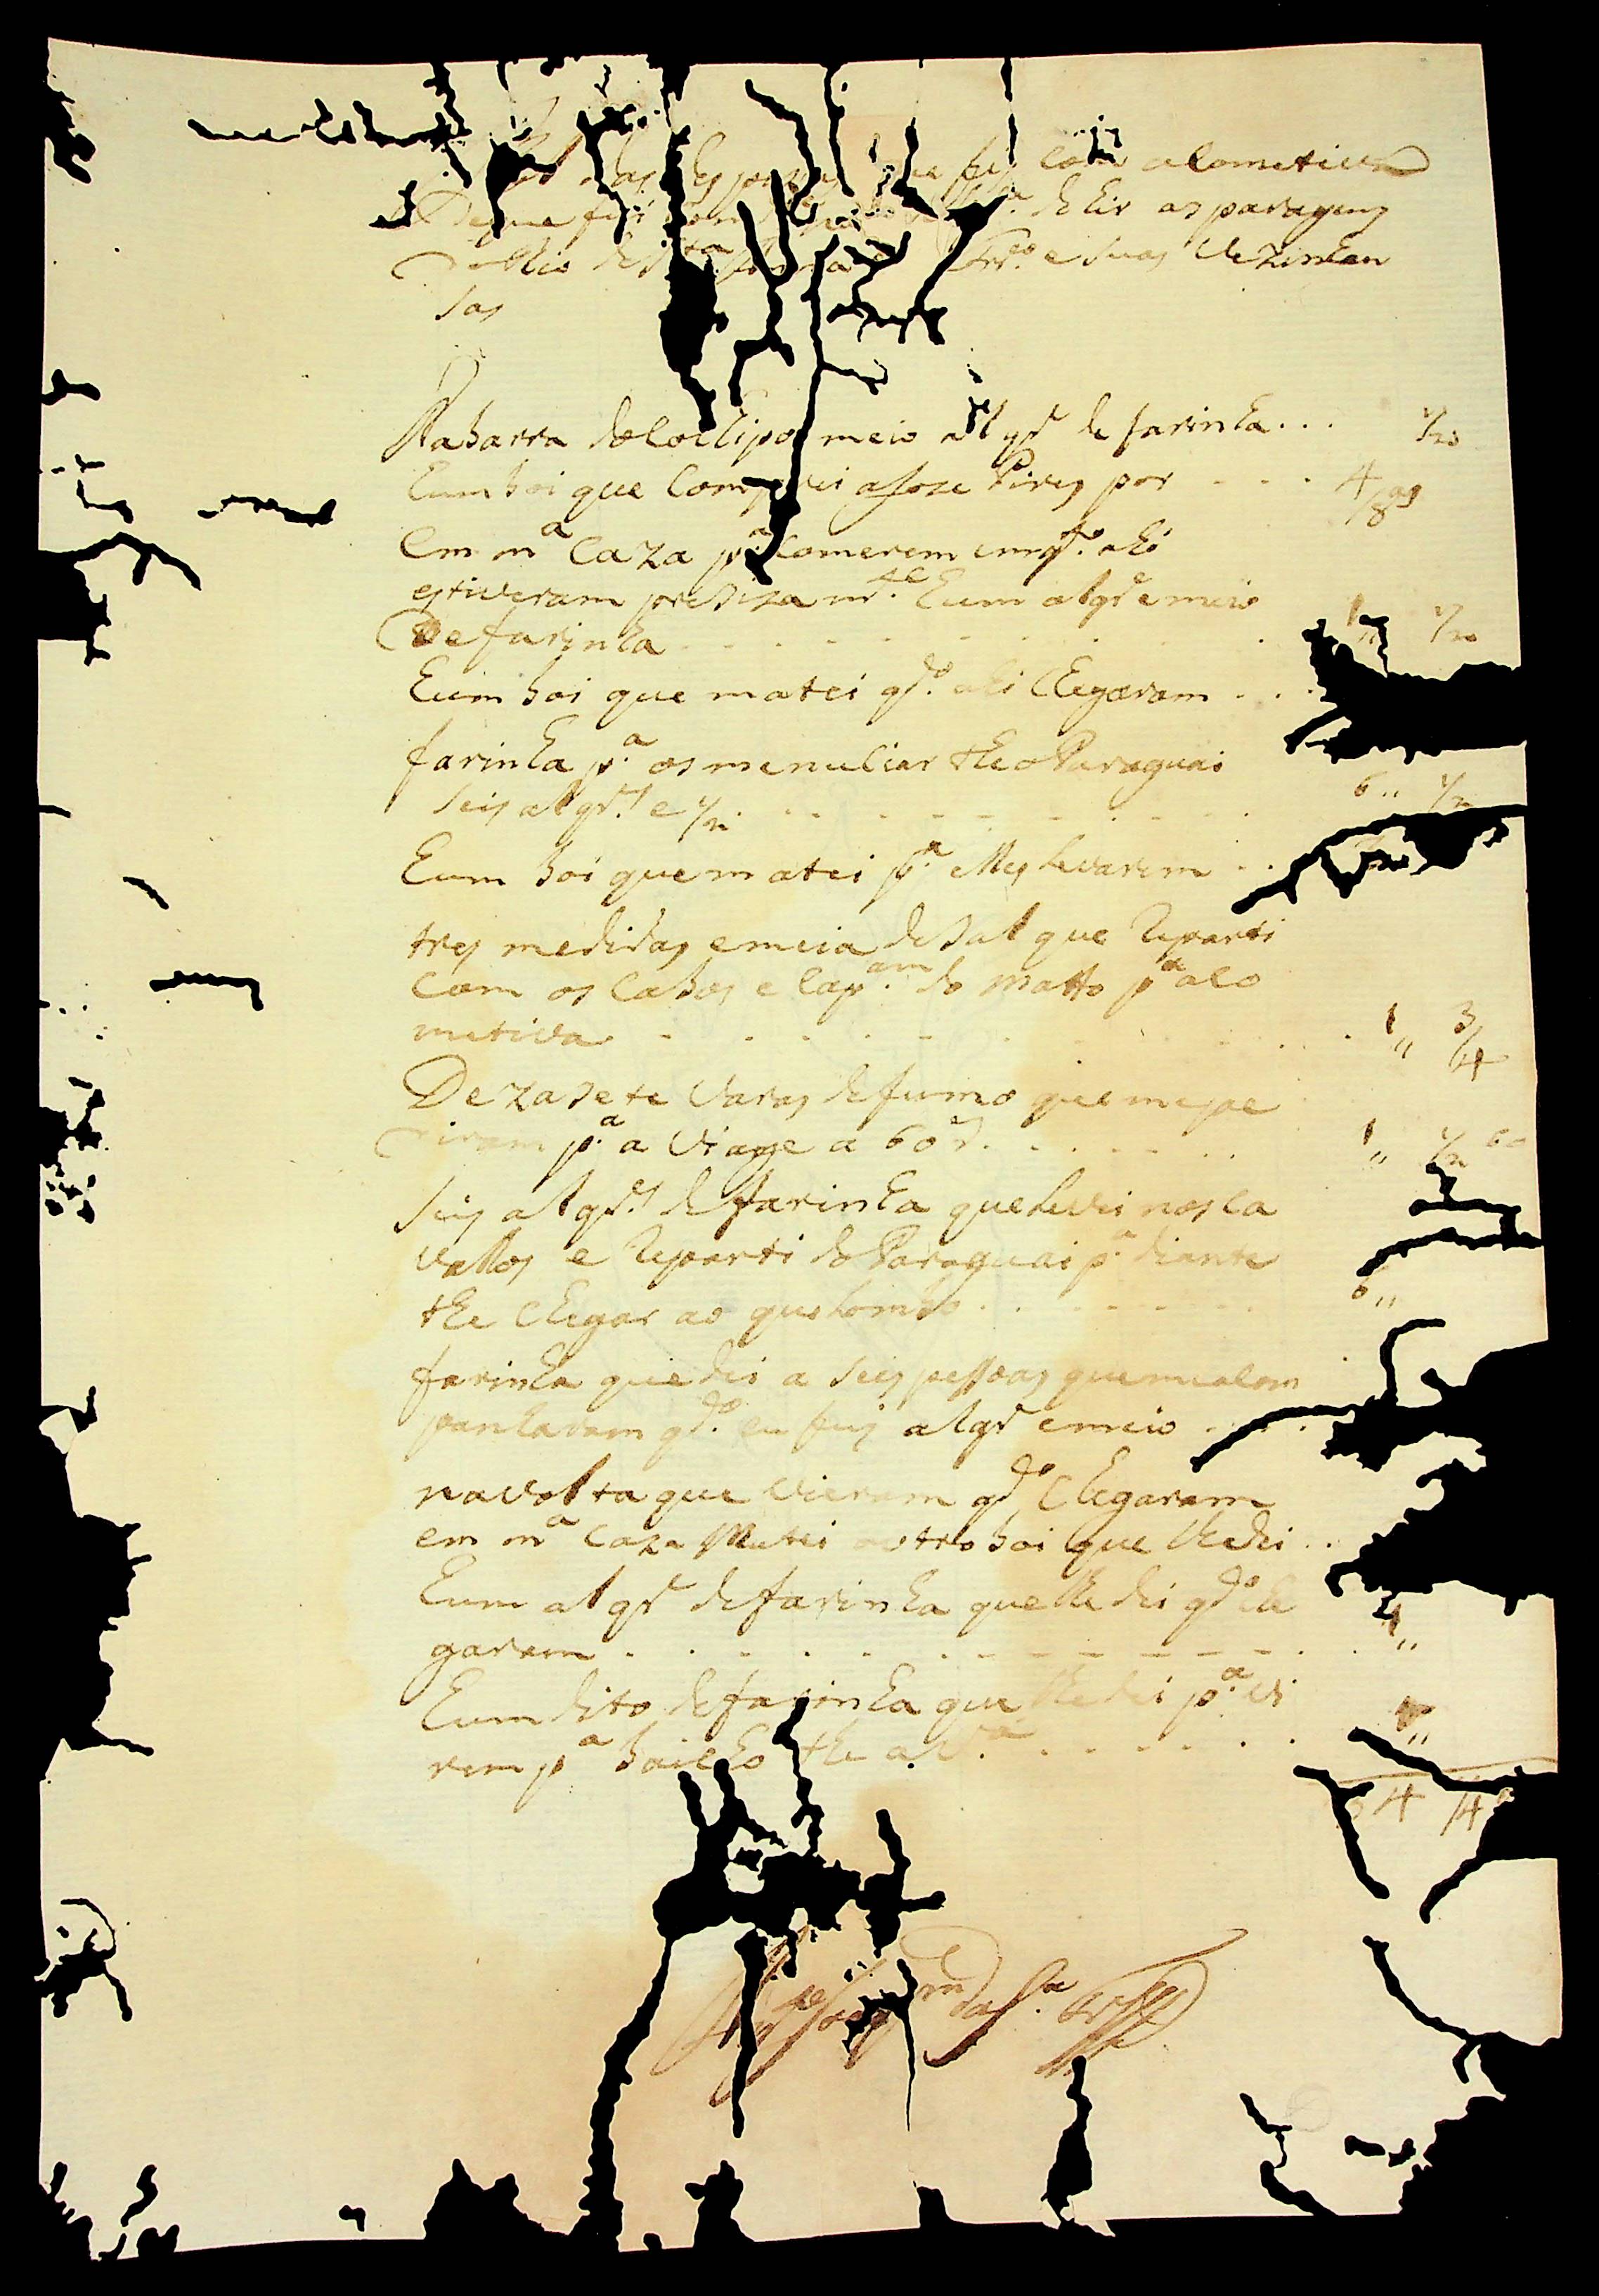 das Despezas que fis com acometiva
Deque fui p.ª de hir as paragens
do Rio e suas vezinhan
sas
Nabarra do Cochipo meio alqr de farinha . . . 1/2
hum boi que Comprei aJoze Pires por - - - 4/8as
em mª Caza pª comerem emqto. ahi
estiveram prezizamte. hum alqr e meio
De farinha - - - 1 1/2
hum boi que matei qdo. ahi chegaram . . .
farinha pª os menuciar the o Paraguai
seis alqr.s e 1/2 . - - - 6 " 1/2
hum boi que matei pª elles Levarem . .
tres medidas emeia desal que Reparti
Com os Cabos e Capam do Matto pª aco
metiva - - - 1 " 3/4
Dezasete Varas de fumo que mepe
diram pª a Viage a 60 rs. - - - 1 " 1/2 60
seis alqr.s de farinha que Levei nos ca
vallos e Reparti do Paraguai pª diante
the chegar ao quelombo . - - - 6 "
farinha que dei a seis pessoas que meacom
panharam qdo. eu fui alqr emeio . . .
navolta que vieram qdo chegaram
em mª Caza Matei outro boi que lhedei . .
hum alqr de farinha que lhe dei qdo che
garam . - - - 1 "
hum dito de farinha que lhe dei pª vi
rem pª baicho the a Vª . - - - 1 "
4 /4